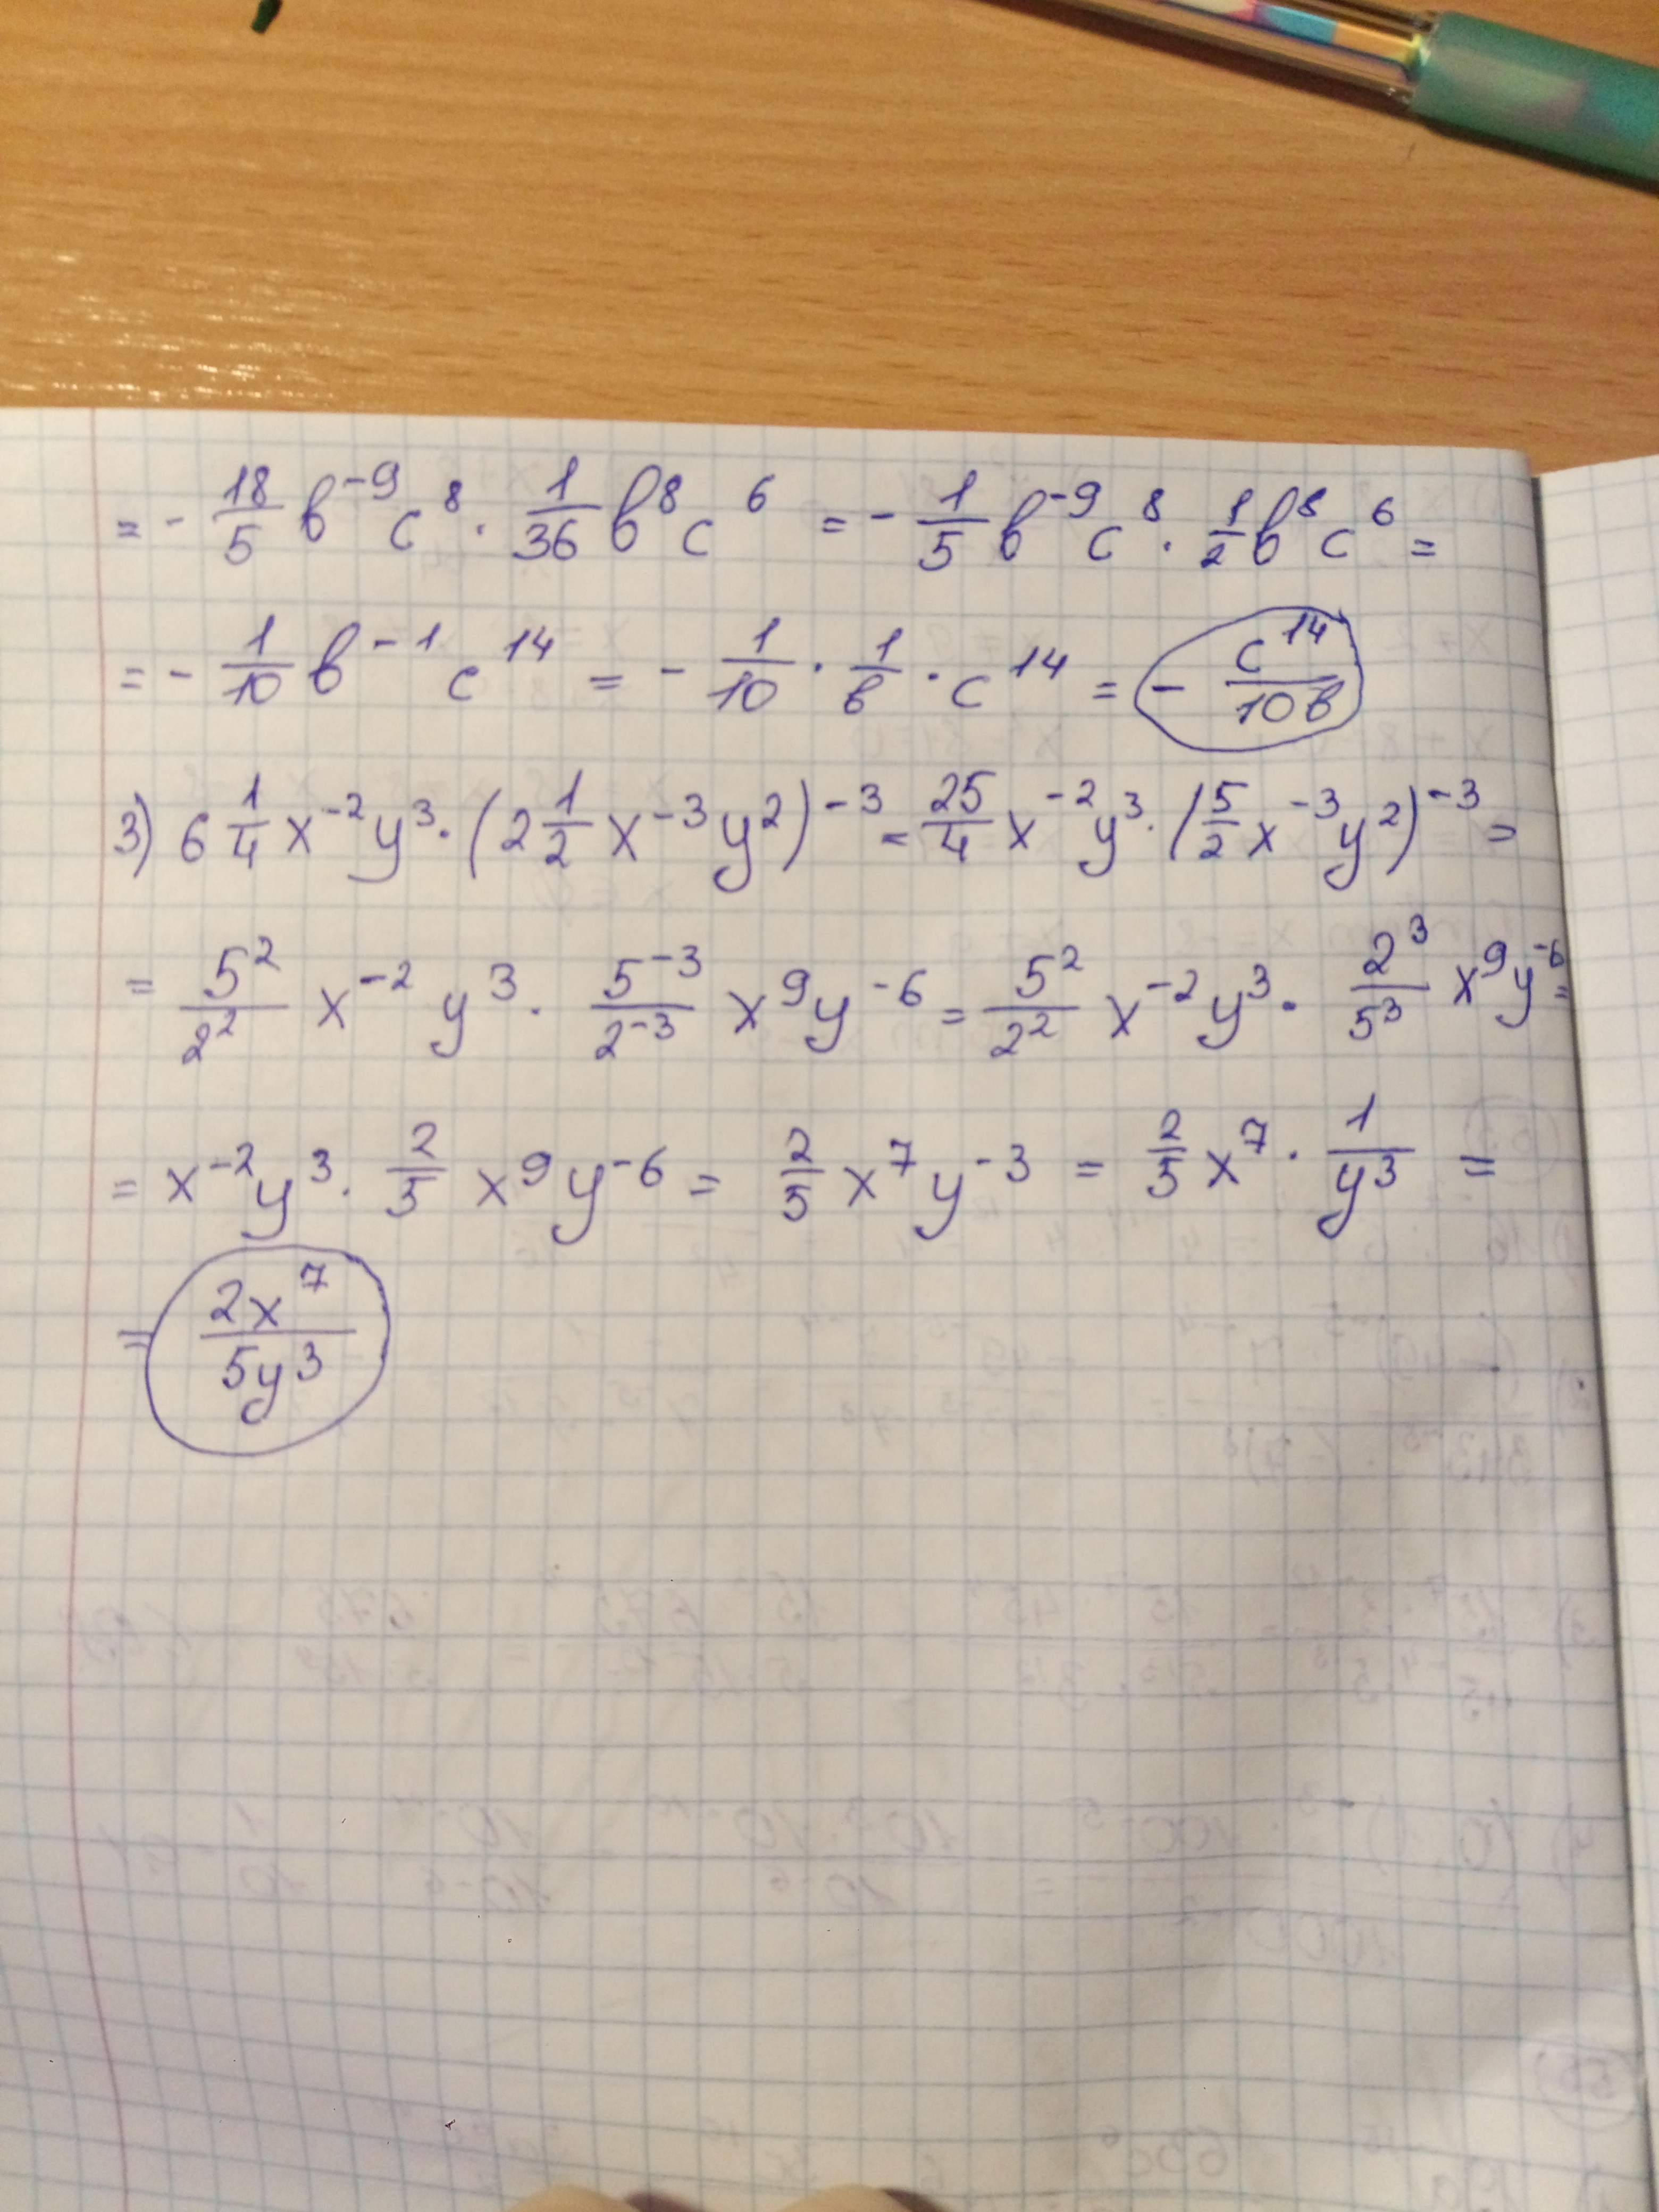 = - 18/5 b⁻⁹c⁸ · 1/36 b⁸c⁶ = - 1/5 b⁻⁹c⁸ · 1/2 b⁸c⁶ =
= - 1/10 b⁻¹c¹⁴ = - 1/10 · 1/b · c¹⁴ = - c¹⁴/10b
3) 6 1/4 x⁻²y³ · (2 1/2 x⁻³y²)⁻³ = 25/4 x⁻²y³ · (5/2 x⁻³y²)⁻³ =
= 5²/2² x⁻²y³ · 5⁻³/2⁻³ x⁹y⁻⁶ = 5²/2² x⁻²y³ · 2³/5³ x⁹y⁻⁶ =
= x⁻²y³ · 2/5 x⁹y⁻⁶ = 2/5 x⁷y⁻³ = 2/5 x⁷ · 1/y³ =
= 2x⁷/5y³